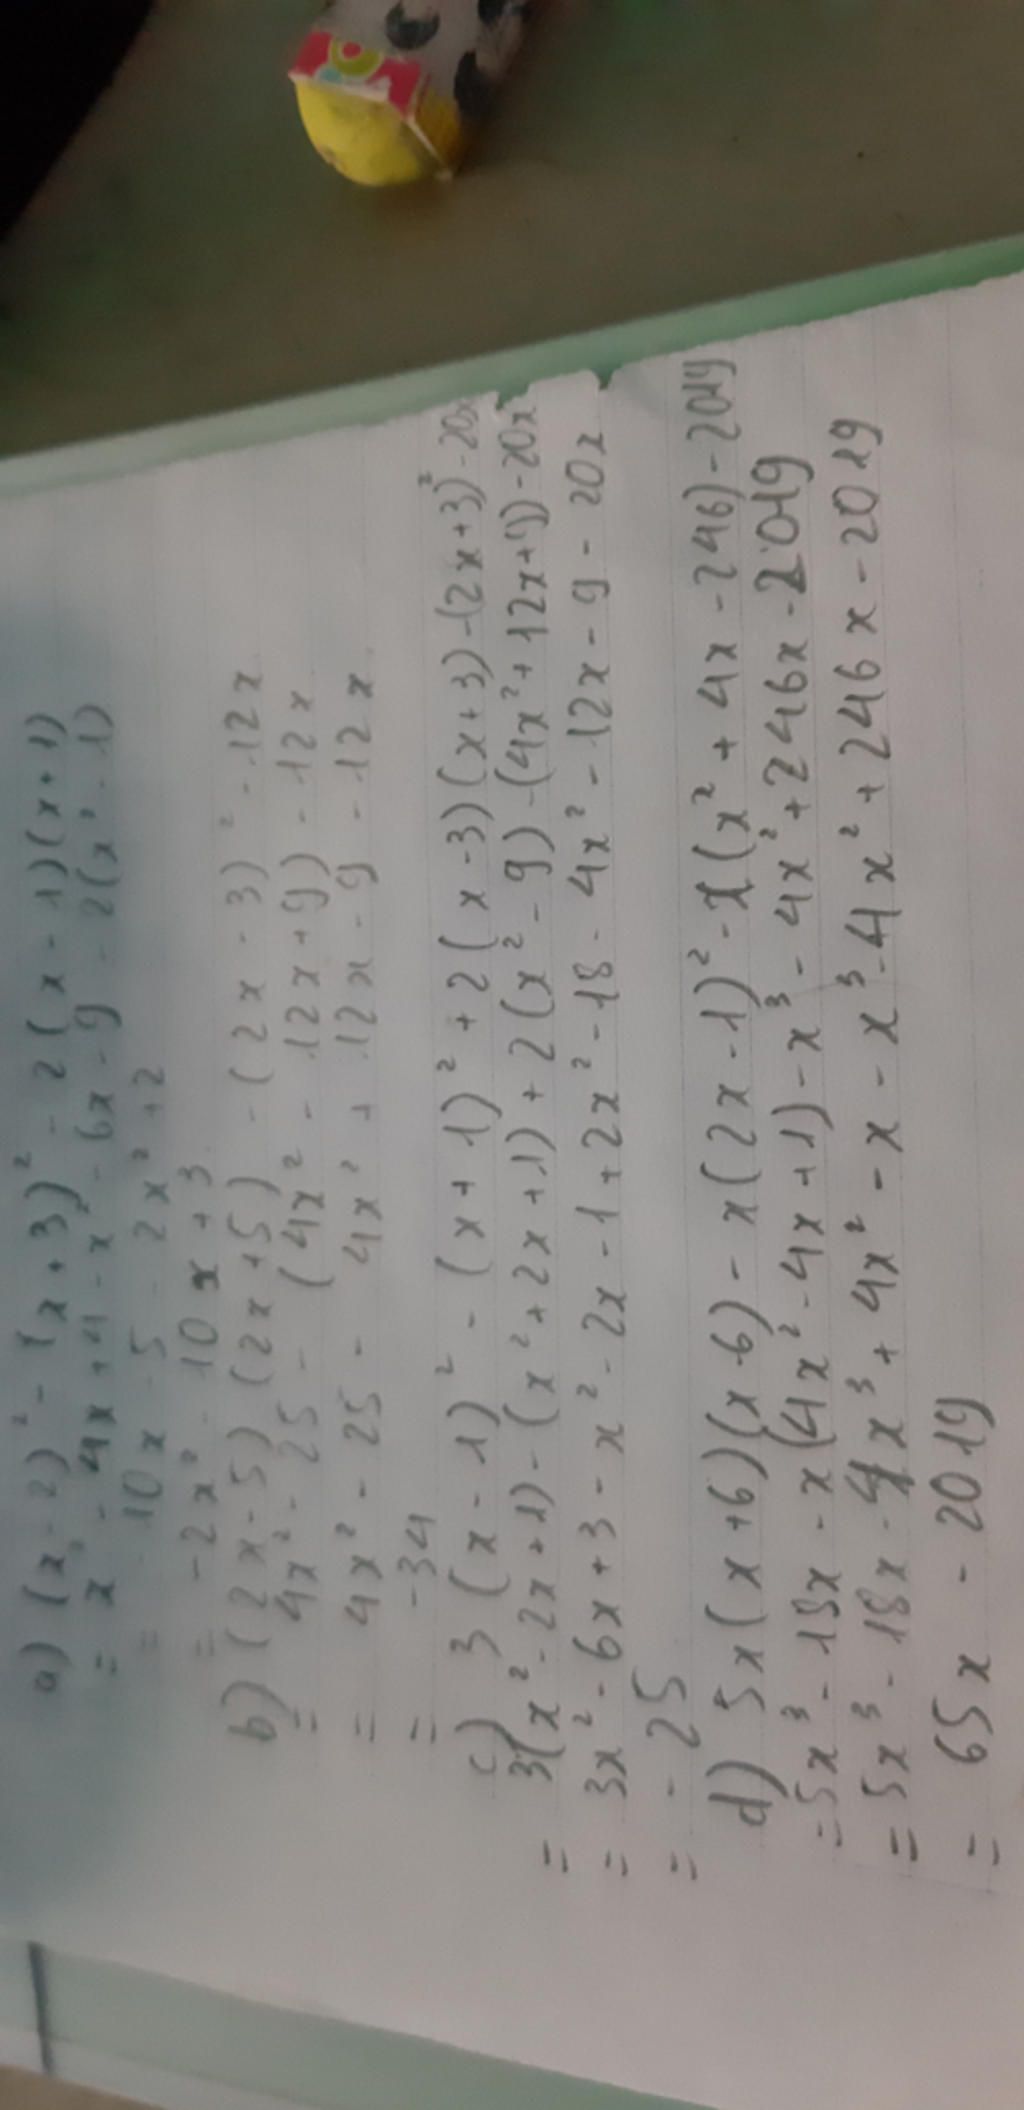 a) (x - 2)² - (x + 3)² - 2(x - 1)(x + 1)
= x² - 4x + 4 - x² - 6x - 9 - 2(x² - 1)
= -10x - 5 - 2x² + 2
= -2x² - 10x + 3
b) (2x - 5)(2x + 5) - (2x - 3)² - 12x
= 4x² - 25 - (4x² - 12x + 9) - 12x
= 4x² - 25 - 4x² + 12x - 9 - 12x
= -34
c) 3(x - 1)² - (x + 1)² + 2(x - 3)(x + 3) - (2x + 3)² - 20x
= 3(x² - 2x + 1) - (x² + 2x + 1) + 2(x² - 9) - (4x² + 12x + 9) - 20x
= 3x² - 6x + 3 - x² - 2x - 1 + 2x² - 18 - 4x² - 12x - 9 - 20x
= -25
d) 5x(x + 6)(x - 6) - x(2x - 1)² - x(x² + 4x - 246) - 2019
= 5x³ - 18x - x(4x² - 4x + 1) - x³ - 4x² + 246x - 2019
= 5x³ - 18x - 4x³ + 4x² - x - x³ - 4x² + 246x - 2019
= 65x - 2019